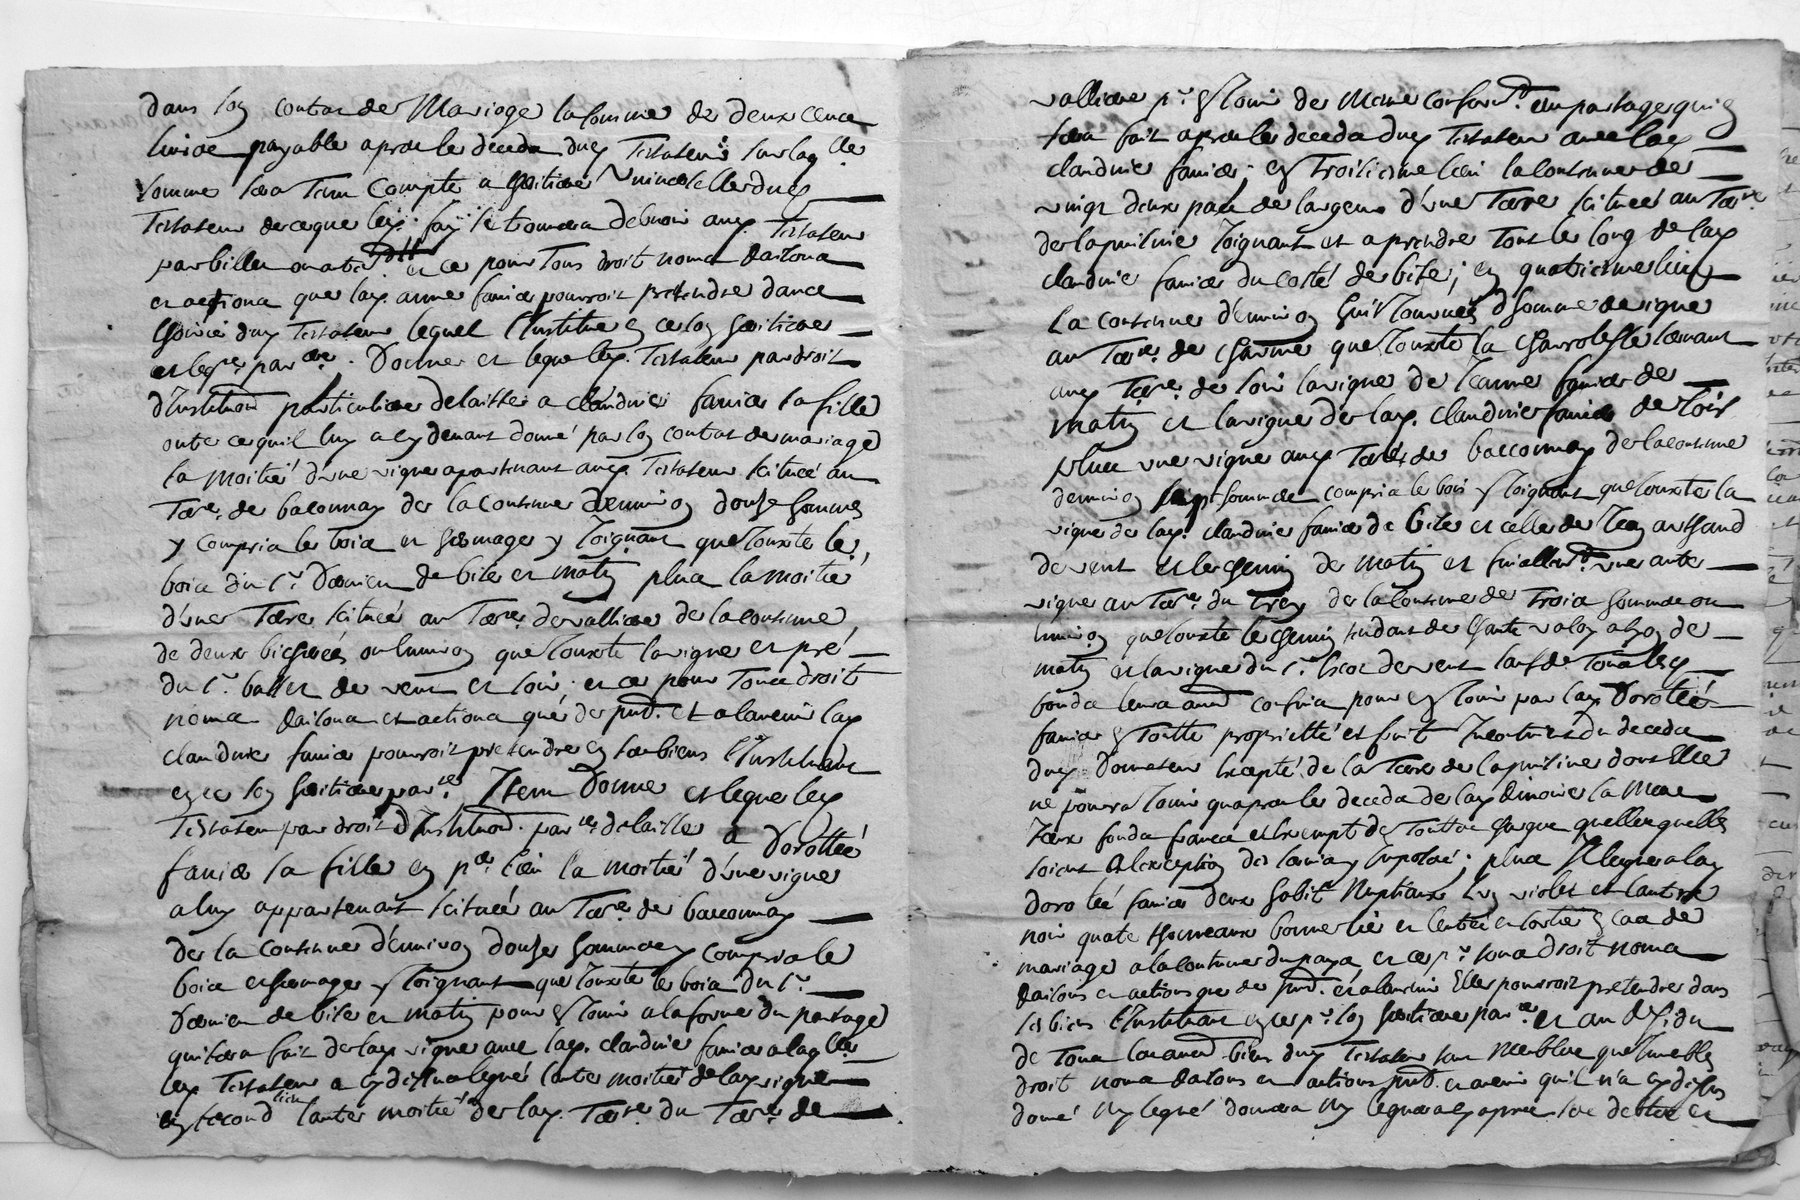 dans son contat de Mariage la somme de deux cens
livres payable apres le deceds dud Testateur sur laqlle
somme sera Tenu Compte a heritier universelle dud
Testateur de ce que led. se trouvera debvoir aud. Testateur
par billet et ce pour Tous droit noms raisons
et actions que lad. anne faniee pourroit pretendre dans
lhoirie dud Testateur lequel l'Institue en ce son heritiere
et legre parre. Donne et legue led. Testateur par droit
d'Institu͞on particuliere delaisse a claudine faniee sa fille
outre ce quil luy a cy devant donné par son contat de mariage
la moitié d'une vigne apartenant aud. Testateur scituée au
Terre. de baconnay de la contenue denviron douze hommes
y compris les bois et hermages y Joignant que Jouxte le
bois du sr. Damien de bize et matin plus la moitié
d'une Terre scituée au Terre. de valliere de la contenue
de deux bicherées ou lenviron que Jouxte la vigne et pré
du sr. ballet de vent et soir; et ce pour Tous droit
noms raisons et actions que de pnt. et a lavenir lad
claudine faniee pourroit pretendre en ses biens l'Instituant
en ce son heritiere parre. Item Donne et legue led
Testateur par droit d'Institu͞on. parre delaisse a Dorottée
faniee sa fille en pr lieu la moitié d'une vigne
a luy appartenant scituée au Terre de baconnay
de la contenue d'environ douze hommes y compris le
bois et hermage y Joignant que Jouxte le bois du sr.
Damien de bize et matin pour en Jouir a la forme du partage
qui sera fait de lad vigne avec lad. claudine faniee a laqlle
led Testateur a cy dessus legué lautre moitié de lad vigne
en second lieu lautre moitié de lad. Terre. du Terre. de
valliere pr. en Jouir de meme conform͞t. au partage qui en
sera fait apres le deceds dud Testateur avec lad
claudine faniee; en Troisieme lieu la contenue de
vingt deux pas de largeur d'une Terre scituée au Terre.
de Joignant et a prendre Tout le long de lad
claudine faniee du costé de bize; en quatrieme lieu
la contenue d'environ huit Journées d'homme de vigne
au Terre. de charme que Jouxte la
aud Terre. de soir la vigne de Jeanne faniee de
matin et la vigne de lad. claudine faniee de soir
plus une vigne aud Terre. de baconnay de la contenue
denviron sept hommes compris le bois y Joignant que Jouxte la
vigne de lad. claudine faniee de bize et celle de Jean
de vent et le chemin de matin et finallem͞t. une autre
vigne au Terre. du de la contenue de Trois hommes ou
lenviron que Jouxte le chemin tendant de a de
matin et la vigne du sr. de vent sauf de Tous lesd
fonds leurs confins pour en Jouir par lad Dorotée
faniee en Toutte proprietté et fruit Incontinent du deceds
dud Donateur Excepté de la Terre de dont Elle
ne pourra Jouir quapres le deceds de lad dimoine sa Mere
Iceux fonds francs et Exempt de Touttes charges quelles quelles
soient a lexception des laouds y Imposés; plus Il legue a lad
dorotée faniee deux habits Nuptiaux l'un violet et lautre
noir quate de
mariage a la contume du pays et ce pr. tous droit noms
raisons et actions que de pnt. et a lavenir Elle pourroit pretendre dans
ses biens l'Instituant en ce pr. son heritiere parre. et au residu
de Tous biens dud Testateur sur Meubles que Imeubles
droit noms raisons et actions pnt. et avenir quil n'a cy dessus
donné Ny legué donnera Ny leguera cy apres ses dettes et